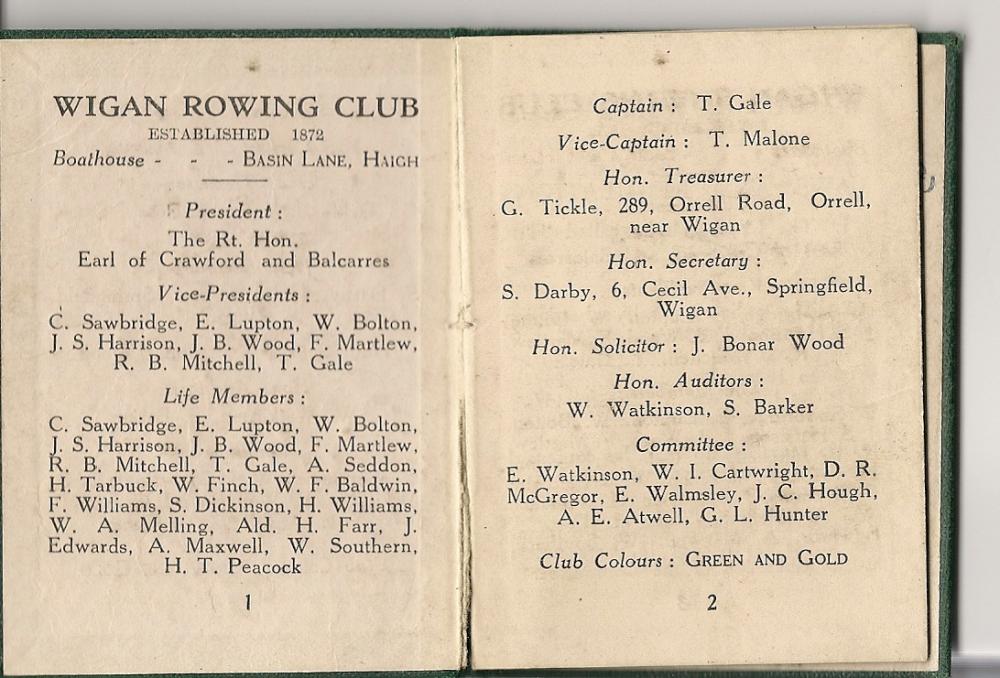 WIGAN ROWING CLUB
ESTABLISHED 1872
Boathouse - - - BASIN LANE, HAIGH
President :
The Rt. Hon.
Earl of Crawford and Balcarres
Vice-Presidents :
C. Sawbridge, E. Lupton, W. Bolton,
J. S. Harrison, J. B. Wood, F. Martlew,
R. B. Mitchell, T. Gale
Life Members :
C. Sawbridge, E. Lupton, W. Bolton,
J. S. Harrison, J. B. Wood, F. Martlew,
R. B. Mitchell, T. Gale, A. Seddon,
H. Tarbuck, W. Finch, W. F. Baldwin,
F. Williams, S. Dickinson, H. Williams,
W. A. Melling, Ald. H. Farr, J.
Edwards, A. Maxwell, W. Southern,
H. T. Peacock
1
Captain : T. Gale
Vice-Captain : T. Malone
Hon. Treasurer :
G. Tickle, 289, Orrell Road, Orrell,
near Wigan
Hon. Secretary :
S. Darby, 6, Cecil Ave., Springfield,
Wigan
Hon. Solicitor : J. Bonar Wood
Hon. Auditors :
W. Watkinson, S. Barker
Committee :
E. Watkinson, W. I. Cartwright, D. R.
McGregor, E. Walmsley, J. C. Hough,
A. E. Atwell, G. L. Hunter
Club Colours : GREEN AND GOLD
2